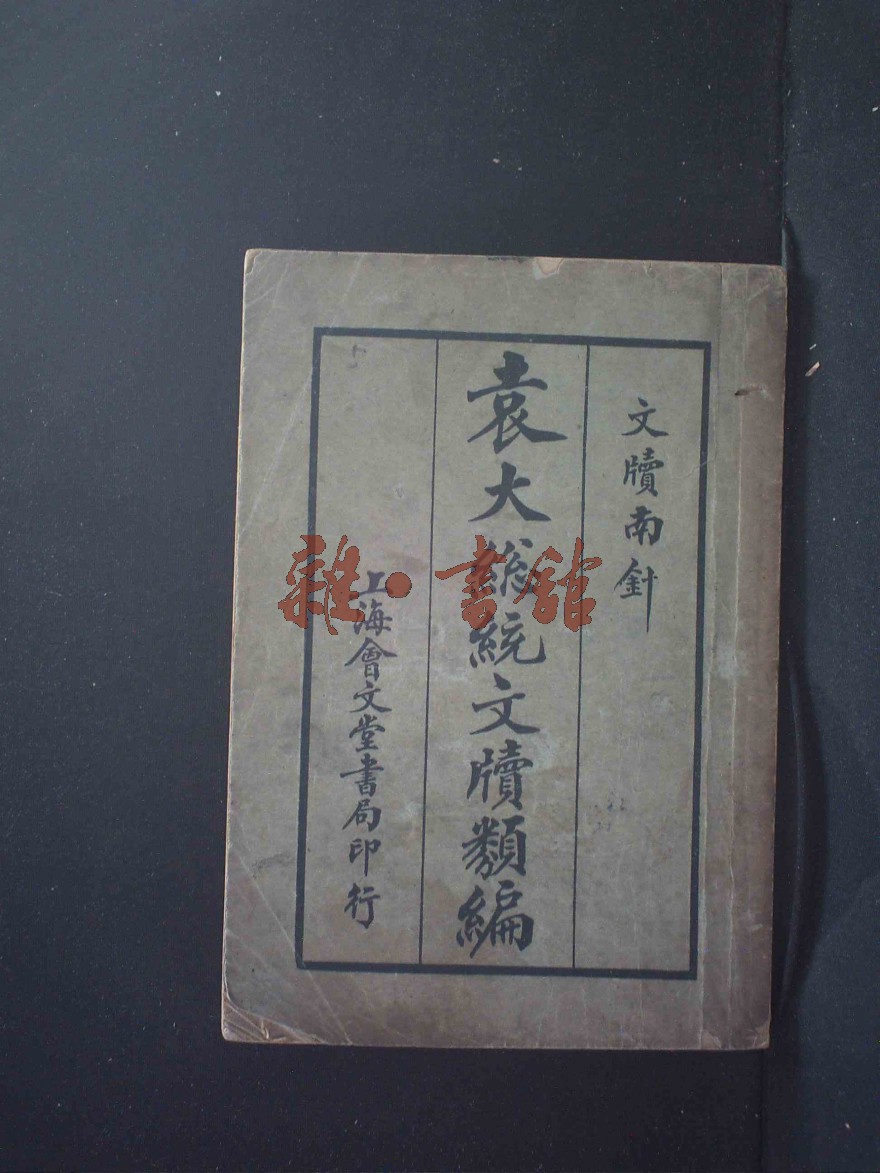 文牘南針
袁大總統文牘類編
上海會文堂書局印行
雜·書館